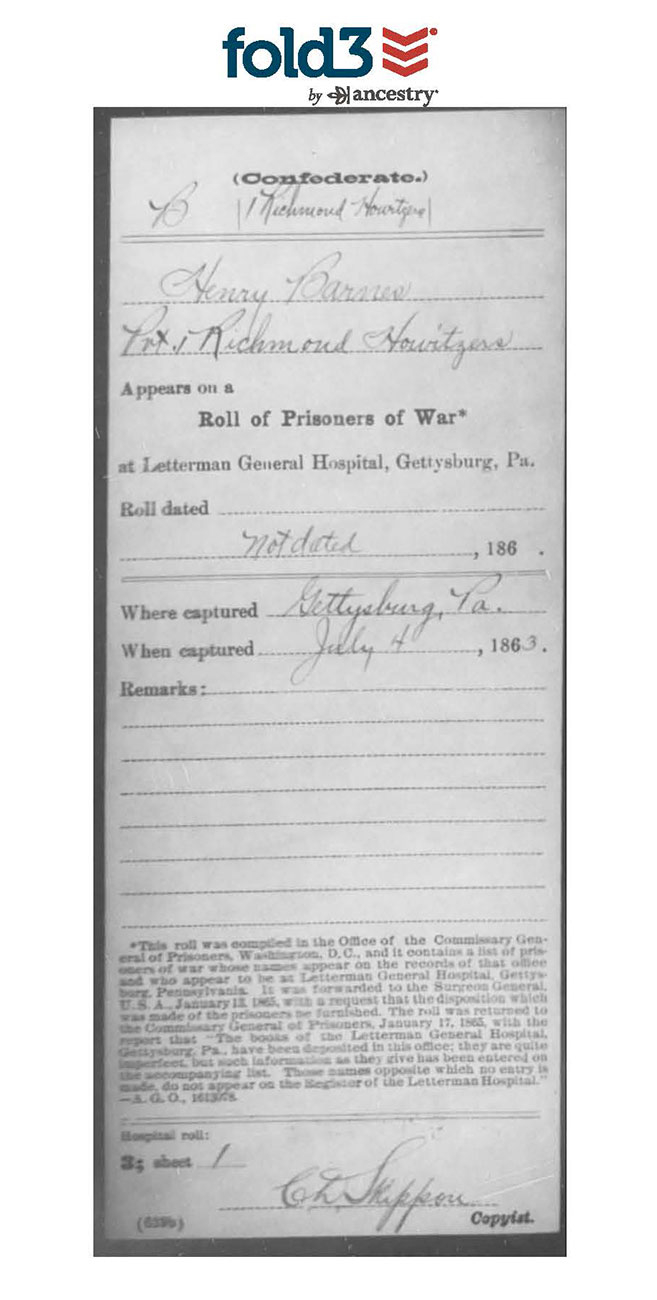 fold3
by ancestry
(Confederate.)
B | 1 Richmond Howitzers |
Henry Barnes
Pvt. 1 Richmond Howitzers
Appears on a
Roll of Prisoners of War*
at Letterman General Hospital, Gettysburg, Pa.
Roll dated
Not dated, 186 .
Where captured Gettysburg, Pa.
When captured July 4, 1863.
Remarks:
*This roll was compiled in the Office of the Commissary Gen-
eral of Prisoners, Washington, D. C., and it contains a list of pris-
oners of war whose names appear on the records of that office
and who appear to be at Letterman General Hospital, Gettys-
burg, Pennsylvania. It was forwarded to the Surgeon General,
U. S. A., January 13, 1865, with a request that the disposition which
was made of the prisoners be furnished. The roll was returned to
the Commissary General of Prisoners, January 17, 1865, with the
report that "The books of the Letterman General Hospital,
Gettysburg, Pa., have been deposited in this office; they are quite
imperfect, but such information as they give has been entered on
the accompanying list. Those names opposite which no entry is
made, do not appear on the Register of the Letterman Hospital."
—A. G. O.,
Hospital roll:
3; sheet 1
Skippon
Copyist.
(639b)